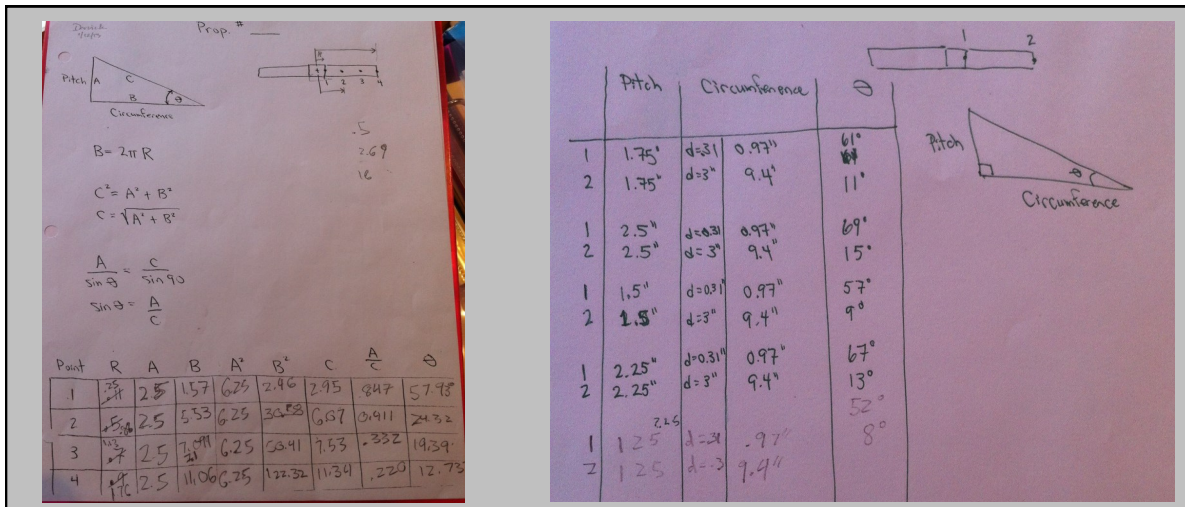 Prop. #
Pitch A C
B θ
Circumference
1 2 3 4
B = 2π R
.5
2.69
C² = A² + B²
C = √A² + B²
A / sin θ = C / sin 90
sin θ = A / C
Point R A B A² B² C A/C θ
1 .25 2.5 1.57 6.25 2.96 2.95 .847 57.93
2 2.5 5.53 6.25 6.07 0.411 24.32
3 2.5 6.25 50.41 7.53 .332 19.39
4 2.5 11.06 6.25 122.32 11.34 .220 12.73
1 2
Pitch Circumference θ
Pitch
θ
Circumference
1 1.75" d=.31 0.97" 61°
2 1.75" d=3" 9.4" 11°
1 2.5" d=0.31 0.97" 69°
2 2.5" d=3" 9.4" 15°
1 1.5" d=0.31" 0.97" 57°
2 1.5" d=3" 9.4" 9°
1 2.25" d=0.31" 0.97" 67°
2 2.25" d=3" 9.4" 13°
52°
2.25
1 125 d=.31 .97" 8°
2 125 d=.3 9.4"